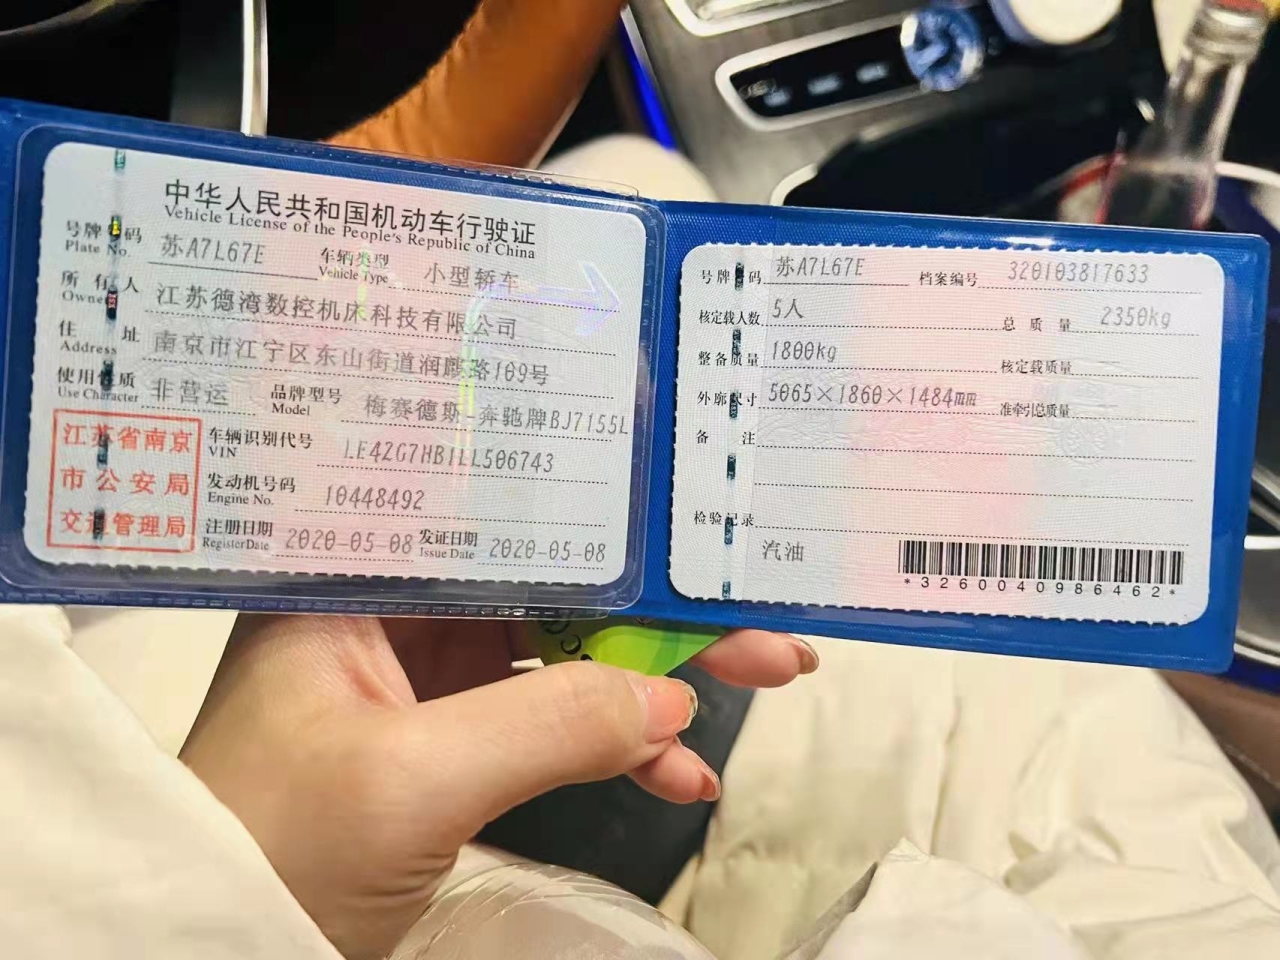 中华人民共和国机动车行驶证
Vehicle License of the People's Republic of China
号牌号码 苏A7L67E 车辆类型 小型轿车
Plate No. Vehicle Type
所有人 江苏德湾数控机床科技有限公司
Owner
住址 南京市江宁区东山街道润麒路109号
Address
使用性质 非营运 品牌型号 梅赛德斯-奔驰牌BJ7155L
Use Character Model
江苏省南京
市公安局
交通管理局
车辆识别代号 LE42G7HB1LL506743
VIN
发动机号码 10448492
Engine No.
注册日期 2020-05-08 发证日期 2020-05-08
Register Date Issue Date
号牌号码 苏A7L67E 档案编号 320103817633
核定载人数 5人 总质量 2350kg
整备质量 1800kg 核定载质量
外廓尺寸 5065×1860×1484mm 准牵引总质量
备注
检验记录
汽油
*3260040986462*